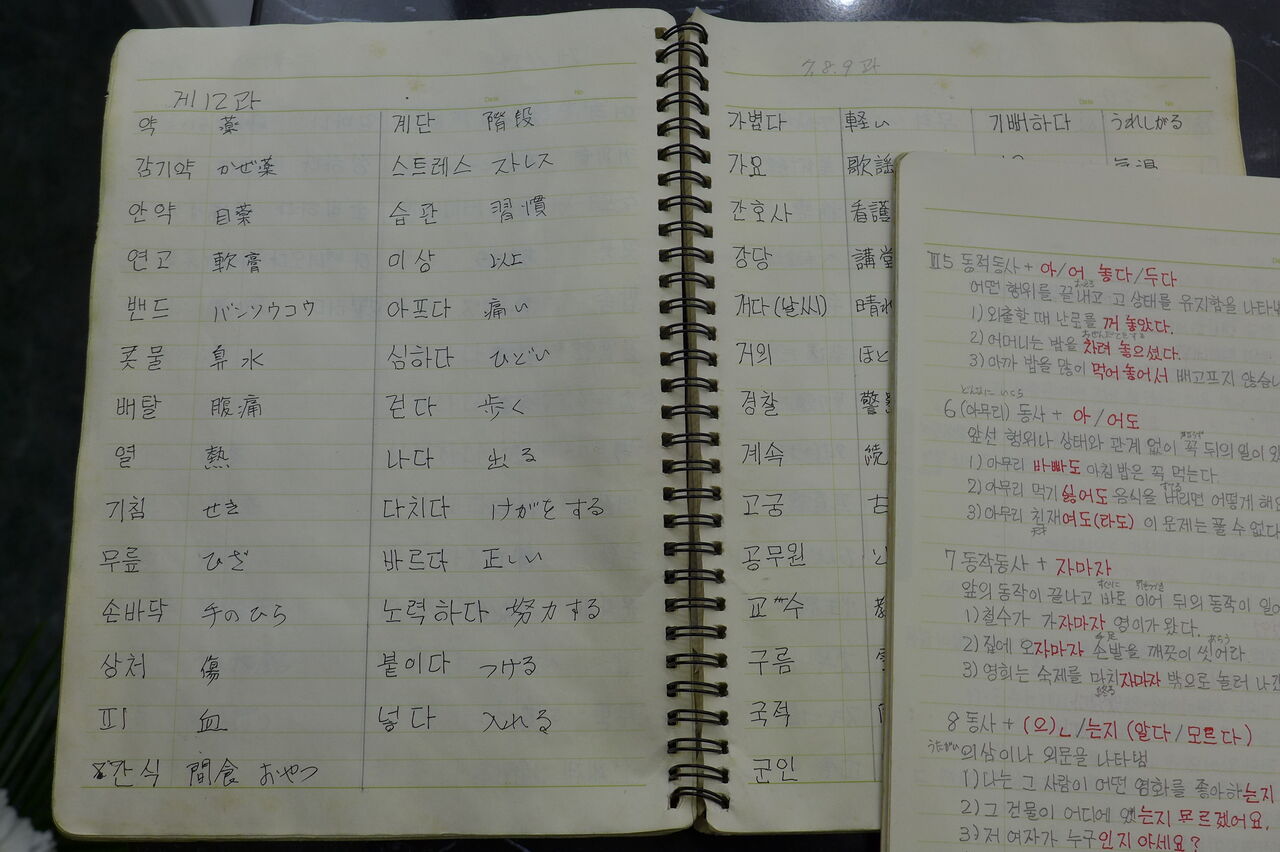 제12과
약 薬
감기약 かぜ薬
안약 目薬
연고 軟膏
밴드 バンソウコウ
콧물 鼻水
배탈 腹痛
열 熱
기침 せき
무릎 ひざ
손바닥 手のひら
상처 傷
피 血
간식 間食 おやつ
계단 階段
스트레스 ストレス
습관 習慣
이상 以上
아프다 痛い
심하다 ひどい
걷다 歩く
나다 出る
다치다 けがをする
바르다 正しい
노력하다 努力する
붙이다 つける
넣다 入れる
7.8.9과
가볍다 軽い 기뻐하다 うれしがる
가요 歌謡 気温
간호사 看護
강당 講堂
개다(날씨) 晴れ
거의 ほと
경찰 警察
계속 続
고궁 古
공무원 公
교수 教
구름
국적
군인
Ⅱ5 동작동사 + 아/어 놓다/두다
어떤 행위를 끝내고 그 상태를 유지함을 나타내
1) 외출할 때 난로를 꺼 놓았다.
2) 어머니는 밥을 차려 놓으셨다.
3) 아까 밥을 많이 먹어 놓어서 배고프지 않습니
どんなに いくら
6 (아무리) 동사 + 아/어도
앞선 행위나 상태와 관계 없이 꼭 뒤의 일이 있
1) 아무리 바빠도 아침 밥은 꼭 먹는다.
2) 아무리 먹기 싫어도 음식을 버리면 어떻게 해요
3) 아무리 천재여도(라도) 이 문제는 풀 수 없다
7 동작동사 + 자마자
앞의 동작이 끝나고 바로 이어 뒤의 동작이 일어
1) 철수가 가자마자 영이가 왔다.
2) 집에 오자마자 손발을 깨끗이 씻어라.
3) 영희는 숙제를 마치자마자 밖으로 놀러 나갔
8 동사 + (으)ㄴ/는지 (알다/모르다)
의심이나 의문을 나타냄
1) 나는 그 사람이 어떤 영화를 좋아하는지
2) 그 건물이 어디에 있는지 모르겠어요.
3) 저 여자가 누구인지 아세요?